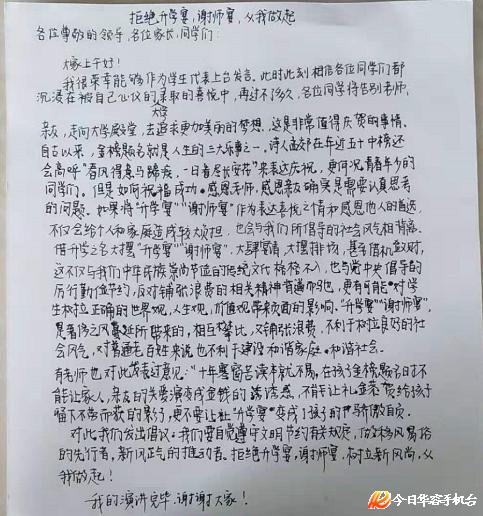 拒绝升学宴,谢师宴,从我做起
各位尊敬的领导,各位家长,同学们:
大家上午好!
我很荣幸能够作为学生代表上台发言。此时此刻相信各位同学们都
沉浸在被自己心仪的大学录取的喜悦中,再过不多久,各位同学将告别老师,
亲友,走向大学殿堂,去追求更加美丽的梦想,这是非常值得庆贺的事情。
自古以来,金榜题名就是人生的三大乐事之一。诗人孟郊在年近五十中榜还
会高呼"春风得意马蹄疾,一日看尽长安花"来表达庆祝,更何况青春年少的
同学们。但是如何祝福成功。感恩老师,感恩亲友确实是需要认真思考
的问题。如果将"升学宴""谢师宴"作为表达喜悦之情和感恩他人的首选,
不仅会给个人和家庭造成较大负担,也会与我们所倡导的社会风气相背离。
借升学之名大摆"升学宴""谢师宴",大肆宴请,大摆排场,甚至借机敛财,
这不仅与我们中华民族崇尚节俭的传统文化格格不入,也与党中央倡导的
厉行勤俭节约,反对铺张浪费的相关精神背道而驰,更有可能对学
生树立正确的世界观,人生观,价值观带来负面的影响。"升学宴""谢师宴",
是奢侈之风蔓延所带来的,相互攀比,又铺张浪费,不利于树立良好的社
会风气,对普通老百姓来说也不利于建设和谐家庭。和谐社会。
有老师也对此发表过意见:"十年寒窗苦读本就不易,在孩子金榜题名时不
能让家人,亲友的关爱演变成金钱的诱惑,不能让礼金花费给孩子
留下不劳而获的影子,更不要让"升学宴"变成了孩子的骄傲自负。
对此我们发出倡议:我们要自觉遵守文明节约有关规定,做移风易俗
的先行者,新风正气的推动者。拒绝升学宴,谢师宴,树立新风尚,从
我做起!
我的演讲完毕,谢谢大家!
今日华容手机台